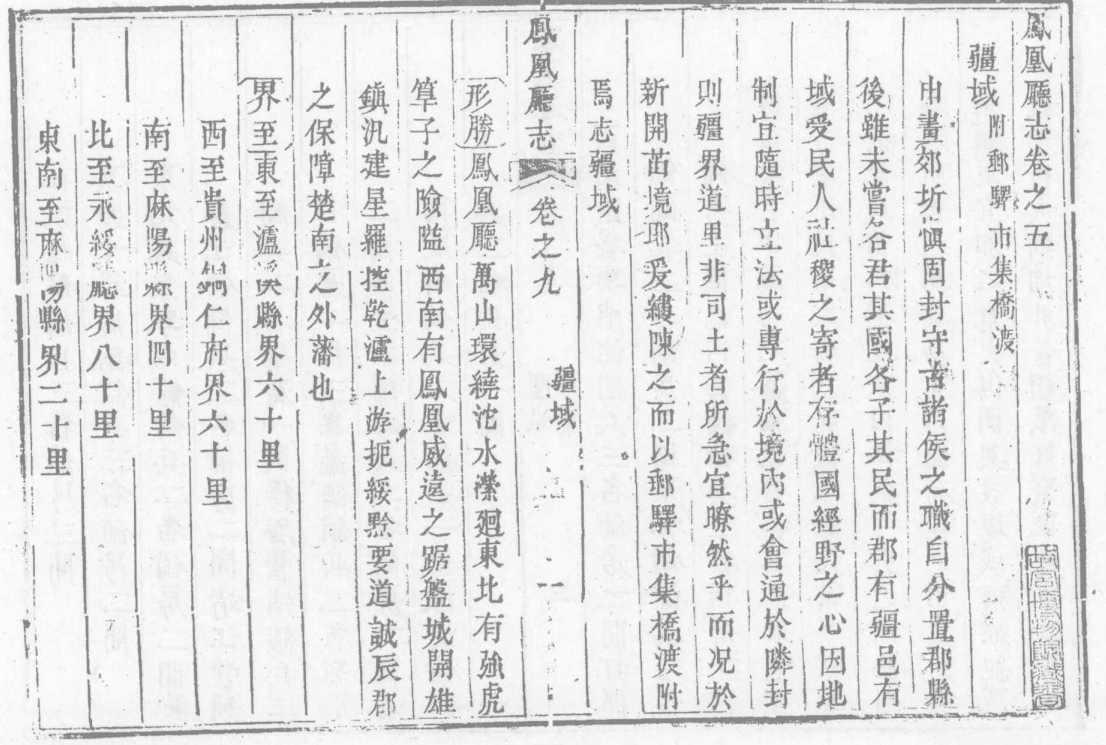 鳳凰廳志卷之五
疆域 附郵驛市集橋渡
申畫郊圻愼固封守古諸侯之職自分置郡縣
後雖未嘗各君其國各子其民而郡有疆邑有
域受民人社稷之寄者存體國經野之心因地
制宜隨時立法或專行於境內或會通於隣封
則疆界道里非司土者所急宜瞭然乎而况於
新開苗境耶爰縷陳之而以郵驛市集橋渡附
焉志疆域
鳳凰廳志 卷之九 疆域 一
形勝 鳳凰廳萬山環繞沱水瀠廻東北有強虎
筸子之險隘西南有鳳凰威遠之踞鑑城開雄
鎭汛建星羅控乾瀘上游扼綏黔要道誠辰郡
之保障楚南之外藩也
界至東至瀘溪縣界六十里
西至貴州銅仁府界六十里
南至麻陽縣界四十里
北至永綏廳界八十里
東南至麻陽縣界二十里